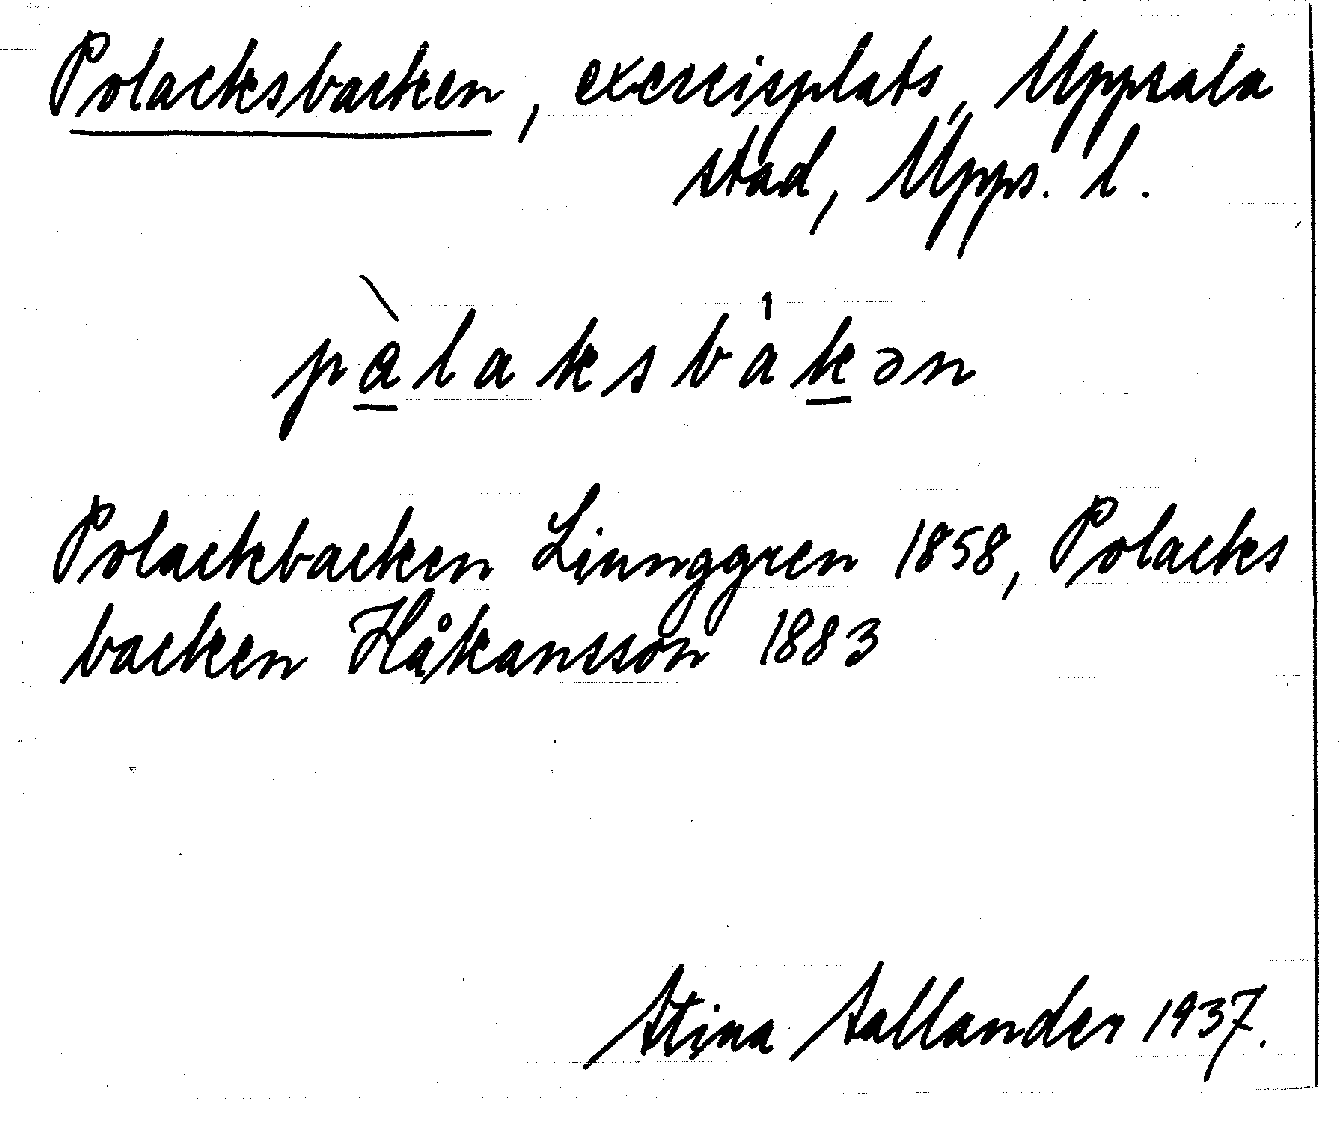 Polacksbacken, exercisplats, Uppsala
stad, Upps. l.
pà̲laksbak̲ən
Polackbacken Liunggren 1858, Polacks
backen Håkansson 1883
Stina Sallander 1937.